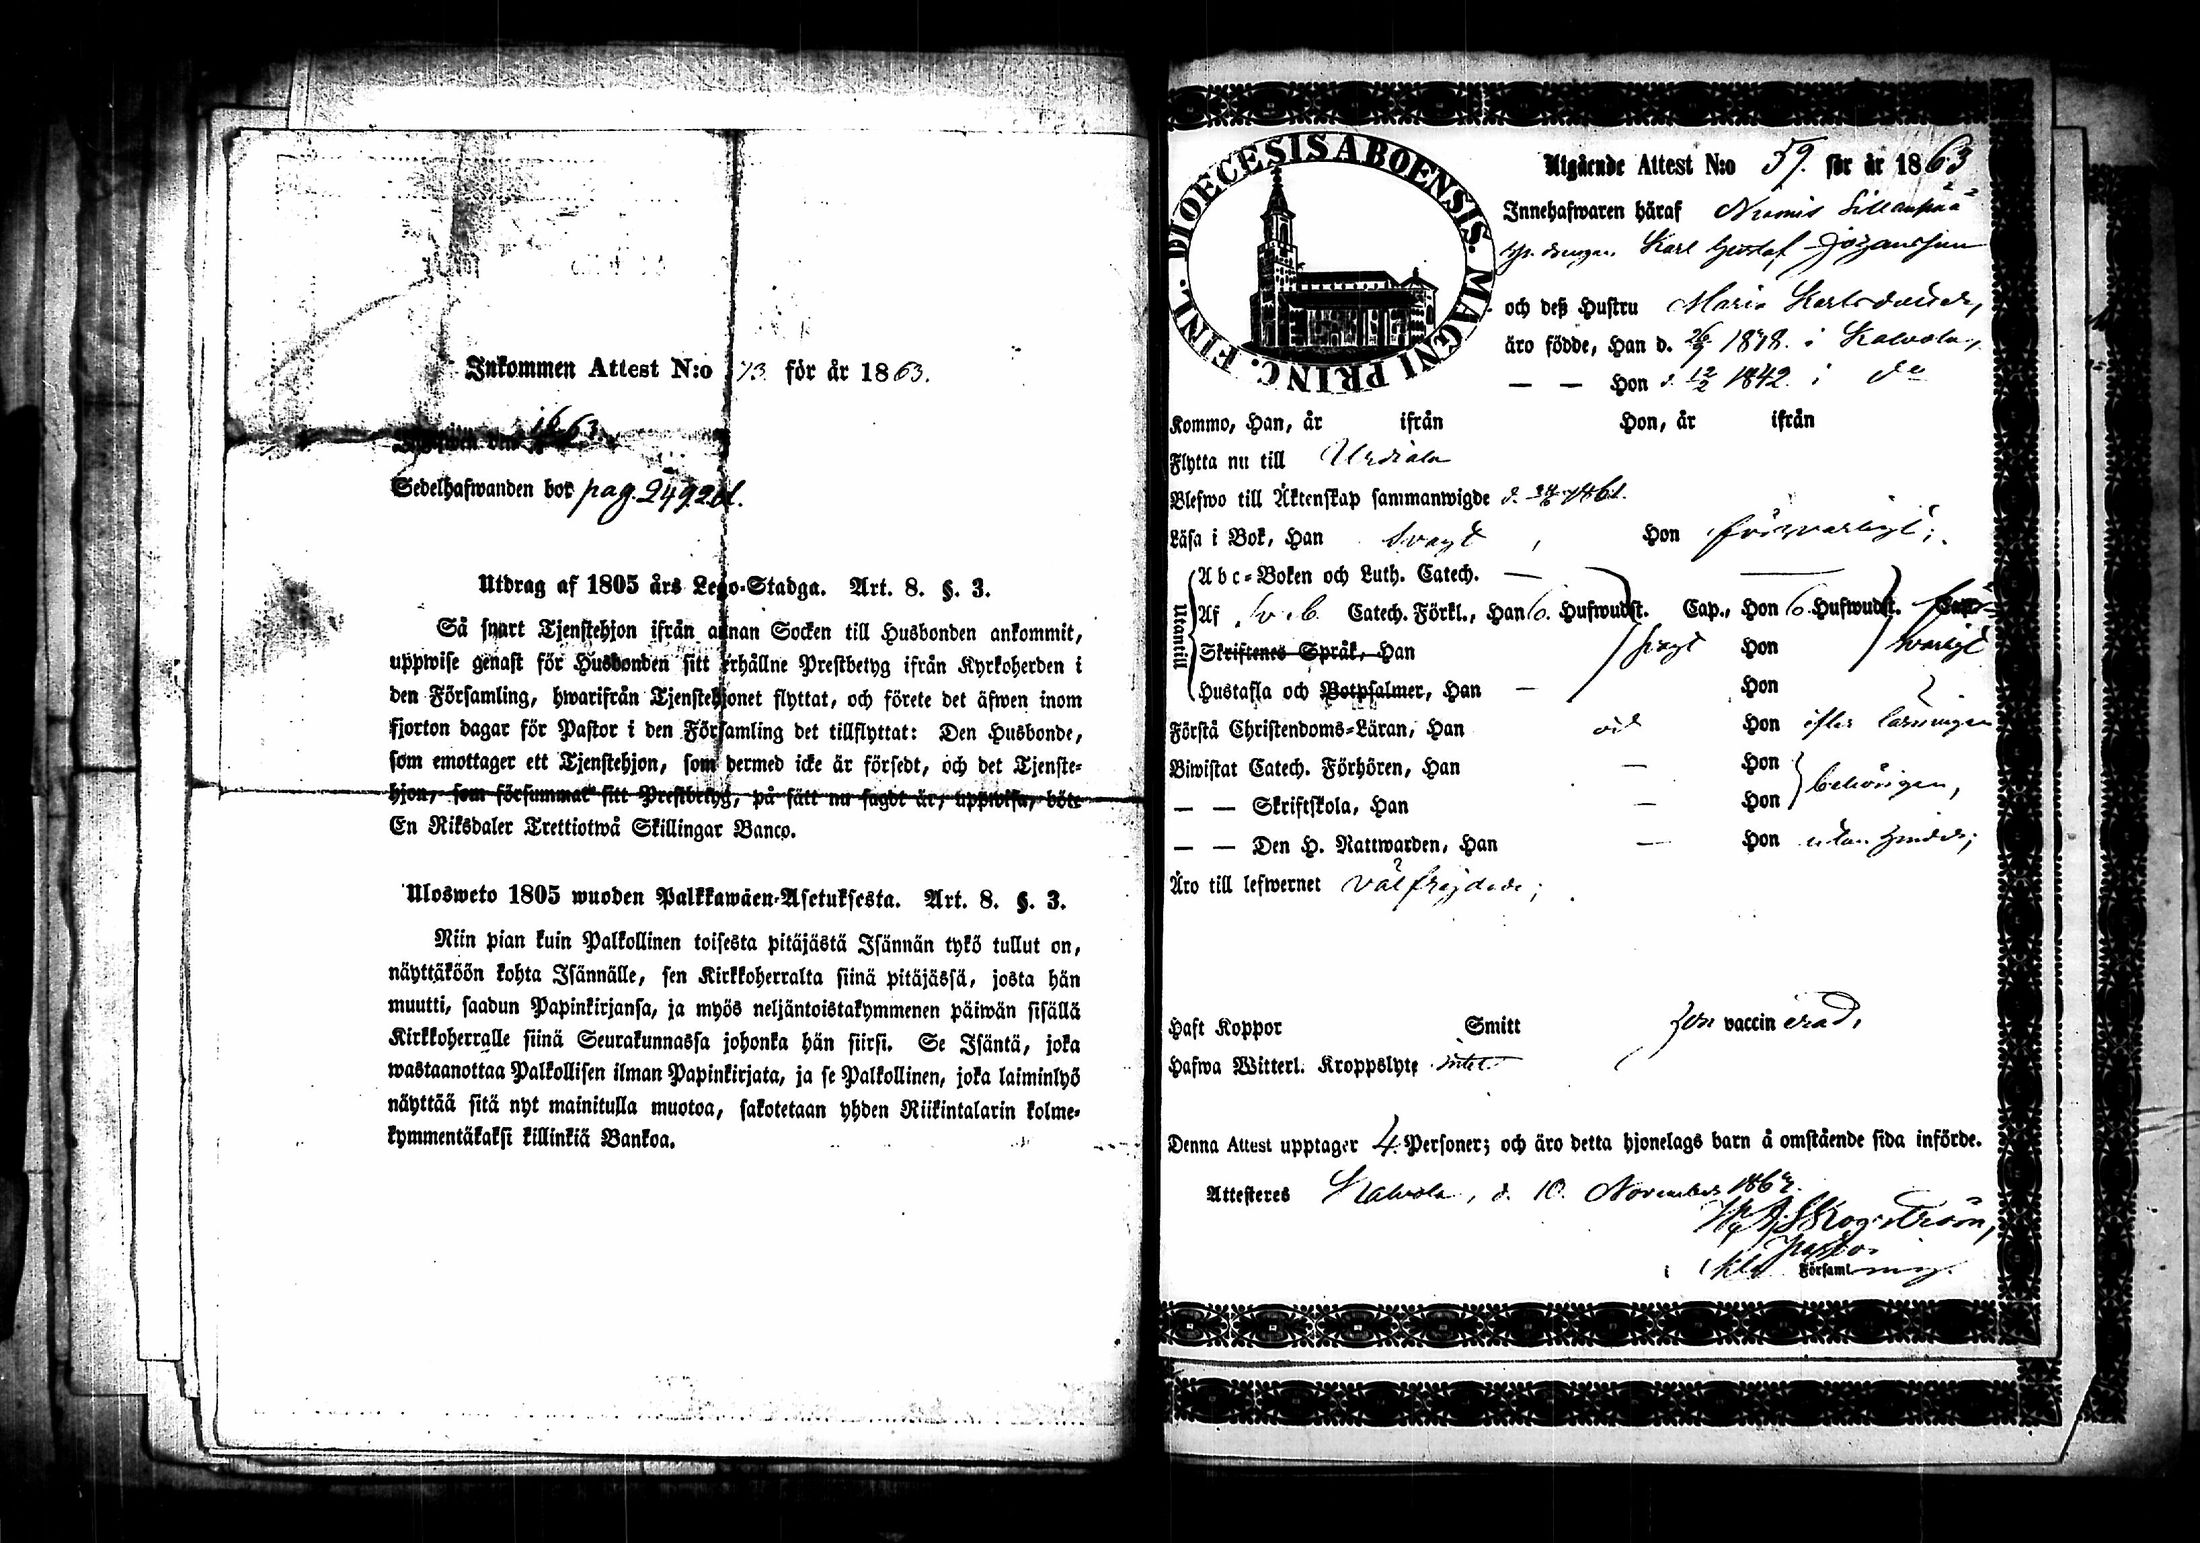 Inkommen Attest N:o 73. för år 1863.
1863.
Sedelhafwanden bor pag. 249.
Utdrag af 1805 års Lego-Stadga. Art. 8. §. 3.
Så snart Tjenstehjon ifrån annan Socken till Husbonden ankommit,
uppwise genast för Husbonden sitt erhållne Prestbetyg ifrån Kyrkoherden i
den Församling, hwarifrån Tjenstehjonet flyttat, och förete det äfwen inom
fjorton dagar för Pastor i den Församling det tillflyttat: Den Husbonde,
som emottager ett Tjenstehjon, som dermed icke är försedt, och det Tjenste-
hjon, som försummat sitt Prestbetyg, på sätt nu sagdt är, uppwisa, böte
En Riksdaler Trettiotwå Skillingar Banco.
Ulosweto 1805 wuoden Palkkawäen-Asetuksesta. Art. 8. §. 3.
Niin pian kuin Palkollinen toisesta pitäjästä Isännän tykö tullut on,
näyttäköön kohta Isännälle, sen Kirkkoherralta siinä pitäjässä, josta hän
muutti, saadun Papinkirjansa, ja myös neljäntoistakymmenen päiwän sisällä
Kirkkoherralle siinä Seurakunnassa johonka hän siirsi. Se Isäntä, joka
wastaanottaa Palkollisen ilman Papinkirjata, ja se Palkollinen, joka laiminlyö
näyttää sitä nyt mainitulla muotoa, sakotetaan yhden Riikintalarin kolme-
kymmentäkaksi killinkiä Bankoa.
FINL. DIOECESIS ABOENSIS. MAGNI PRINC.
Utgående Attest N:o 59. för år 1863
Innehafwaren häraf Sillanpää
Karl Gustaf Johansson
och deß Hustru Maria Karlsdotter,
äro födde, Han d. 1838. i Kalvola,
— — Hon d. 12/2 1842. i do
Kommo, Han, år ifrån Hon, år ifrån
Flytta nu till Urdiala
Blefwo till Äktenskap sammanwigde d. 1861.
Läsa i Bok, Han svagt, Hon försvarligt;
Utantill
Abc-Boken och Luth. Catech. — —
Af Catech. Förkl., Han 6. Hufwudst. Cap., Hon 6. Hufwudst. Cap. för-
Skriftenes Språk, Han svagt Hon svarligt
Hustafla och Botpsalmer, Han — Hon
Förstå Christendoms-Läran, Han Hon efter läsningen
Biwistat Catech. Förhören, Han — Hon
— — Skriftskola, Han — Hon behörigen,
— — Den H. Nattwarden, Han — Hon utan hinder;
Äro till lefwernet välfrejdade;
Haft Koppor Smitt Hon vaccinerad,
Hafwa Witterl. Kroppslyte intet
Denna Attest upptager 4 Personer; och äro detta hjonelags barn å omstående sida införde.
Attesteres Kalvola, d. 10. November 1863.
Skogström,
Pastor
i Församling.